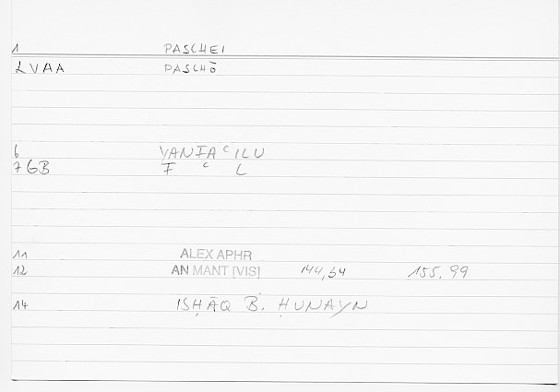 1 PASCHEI
2 VAA PASCHŌ
6 YANFAʿILU
7 GB F ʿ L
11 ALEX APHR
12 AN MANT [VIS] 155,99
14 ISḤĀQ B. ḤUNAYN